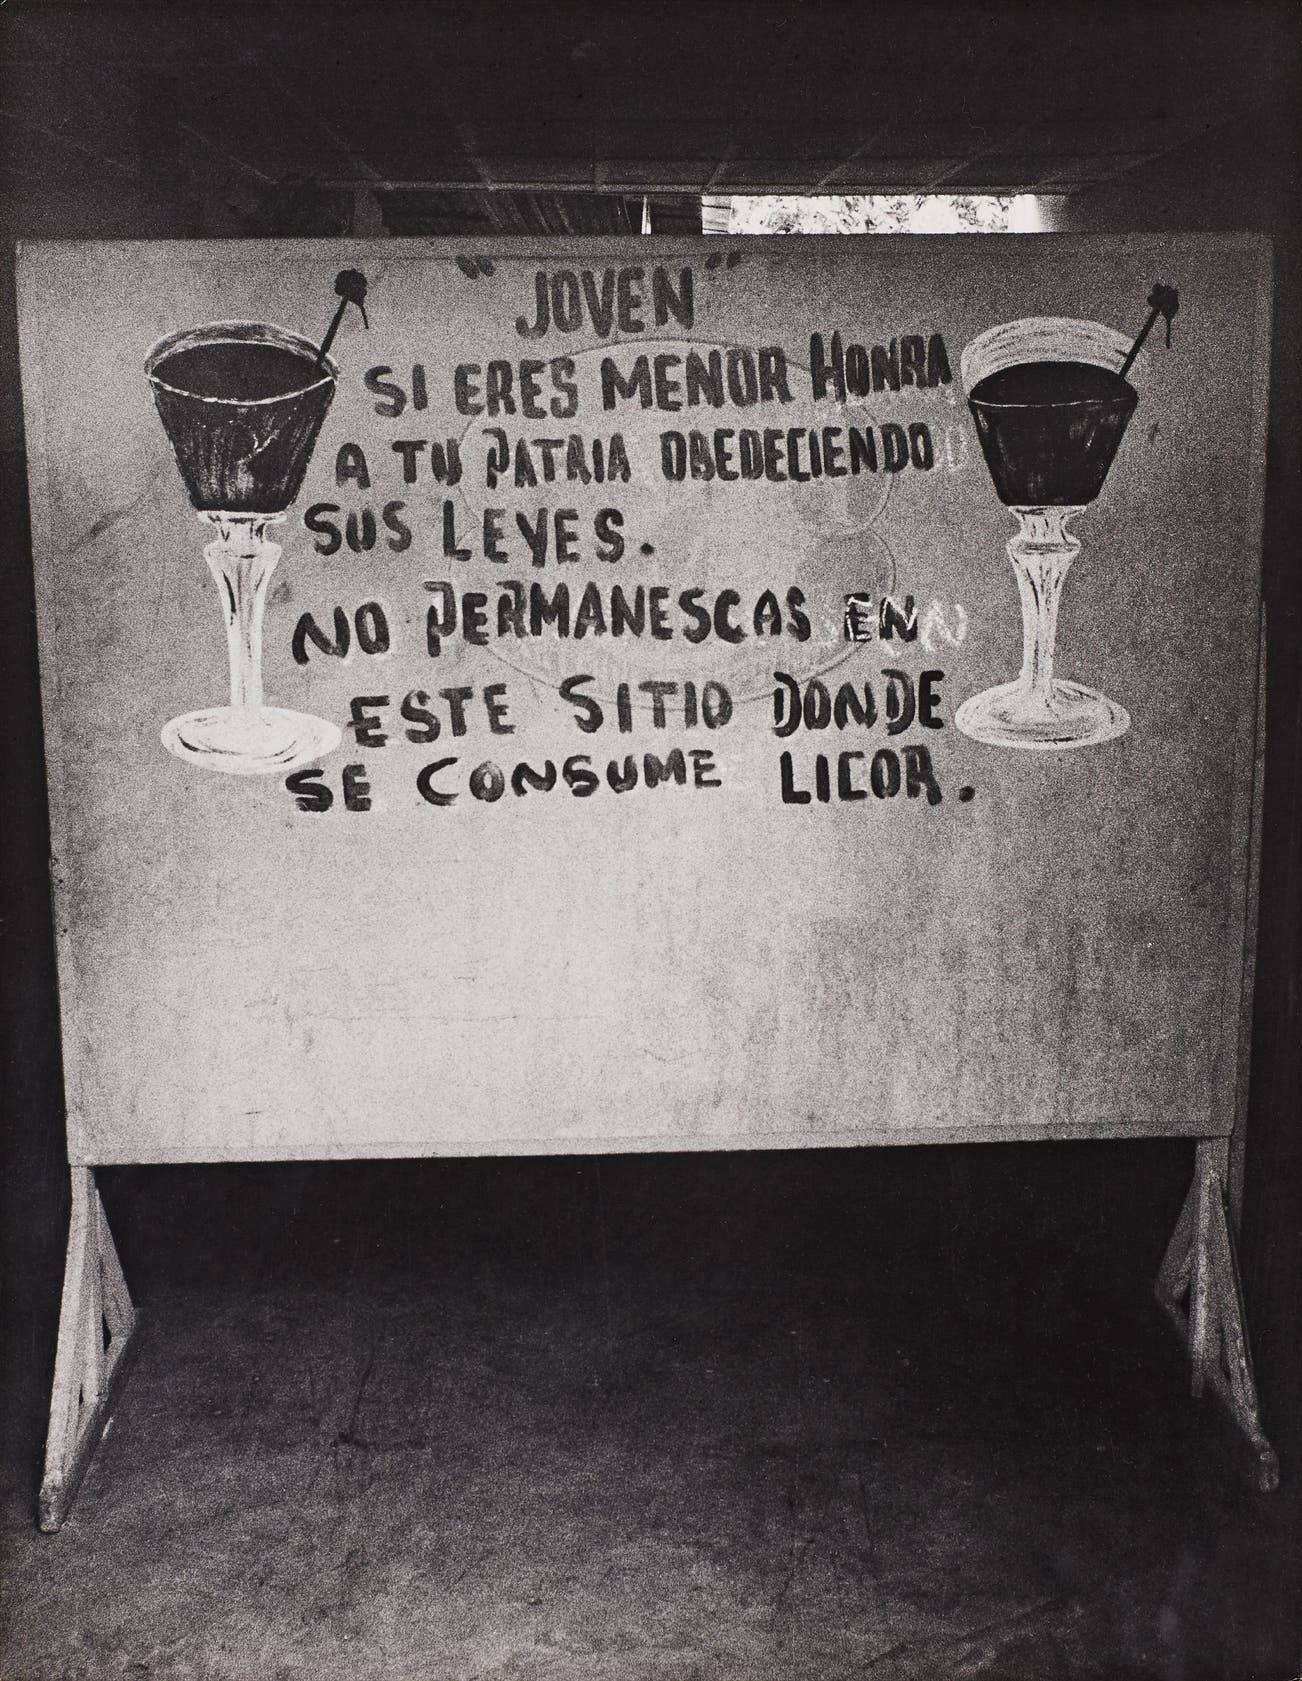 "JOVEN"
SI ERES MENOR HONRA
A TU PATRIA OBEDECIENDO
SUS LEYES.
NO PERMANESCAS EN
ESTE SITIO DONDE
SE CONSUME LICOR.